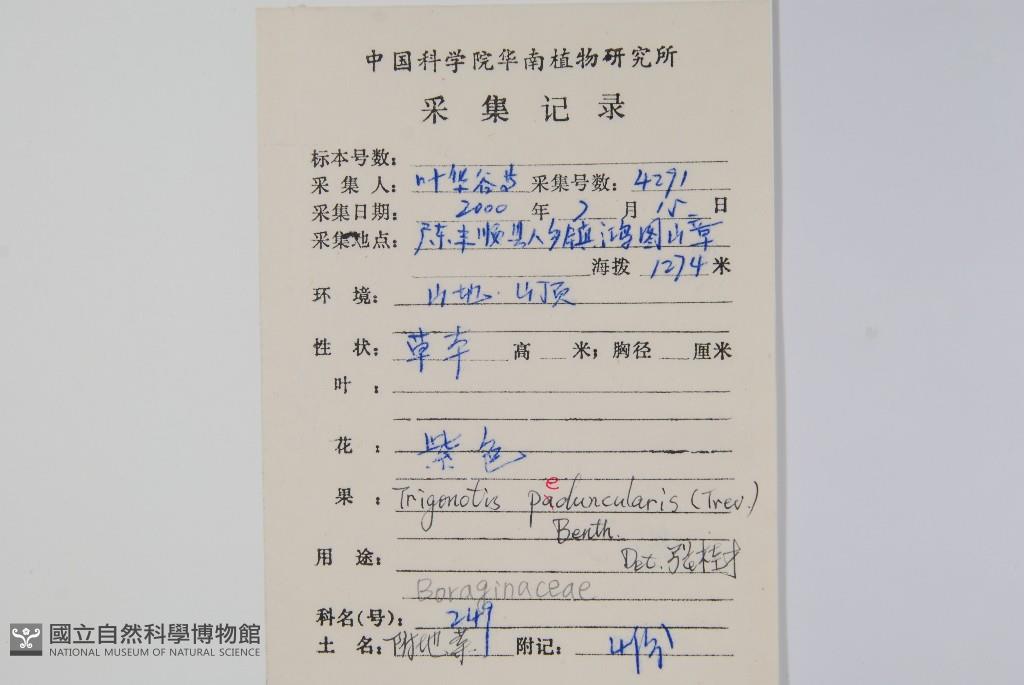 中国科学院华南植物研究所
采集记录
标本号数：
采集人：叶华谷等 采集号数：4291
采集日期：2000 年 7 月 15 日
采集地点：广东丰顺县八乡镇鸿图山章
海拨 1274 米
环境：山地．山顶
性状：草本 高 米；胸径 厘米
叶：
花：紫色
果：Trigonotis peduncularis (Trev.)
Benth.
用途： Det. 张桂才
Boraginaceae
科名(号)：249
土名：附地菜 附记：4份
國立自然科學博物館
NATIONAL MUSEUM OF NATURAL SCIENCE